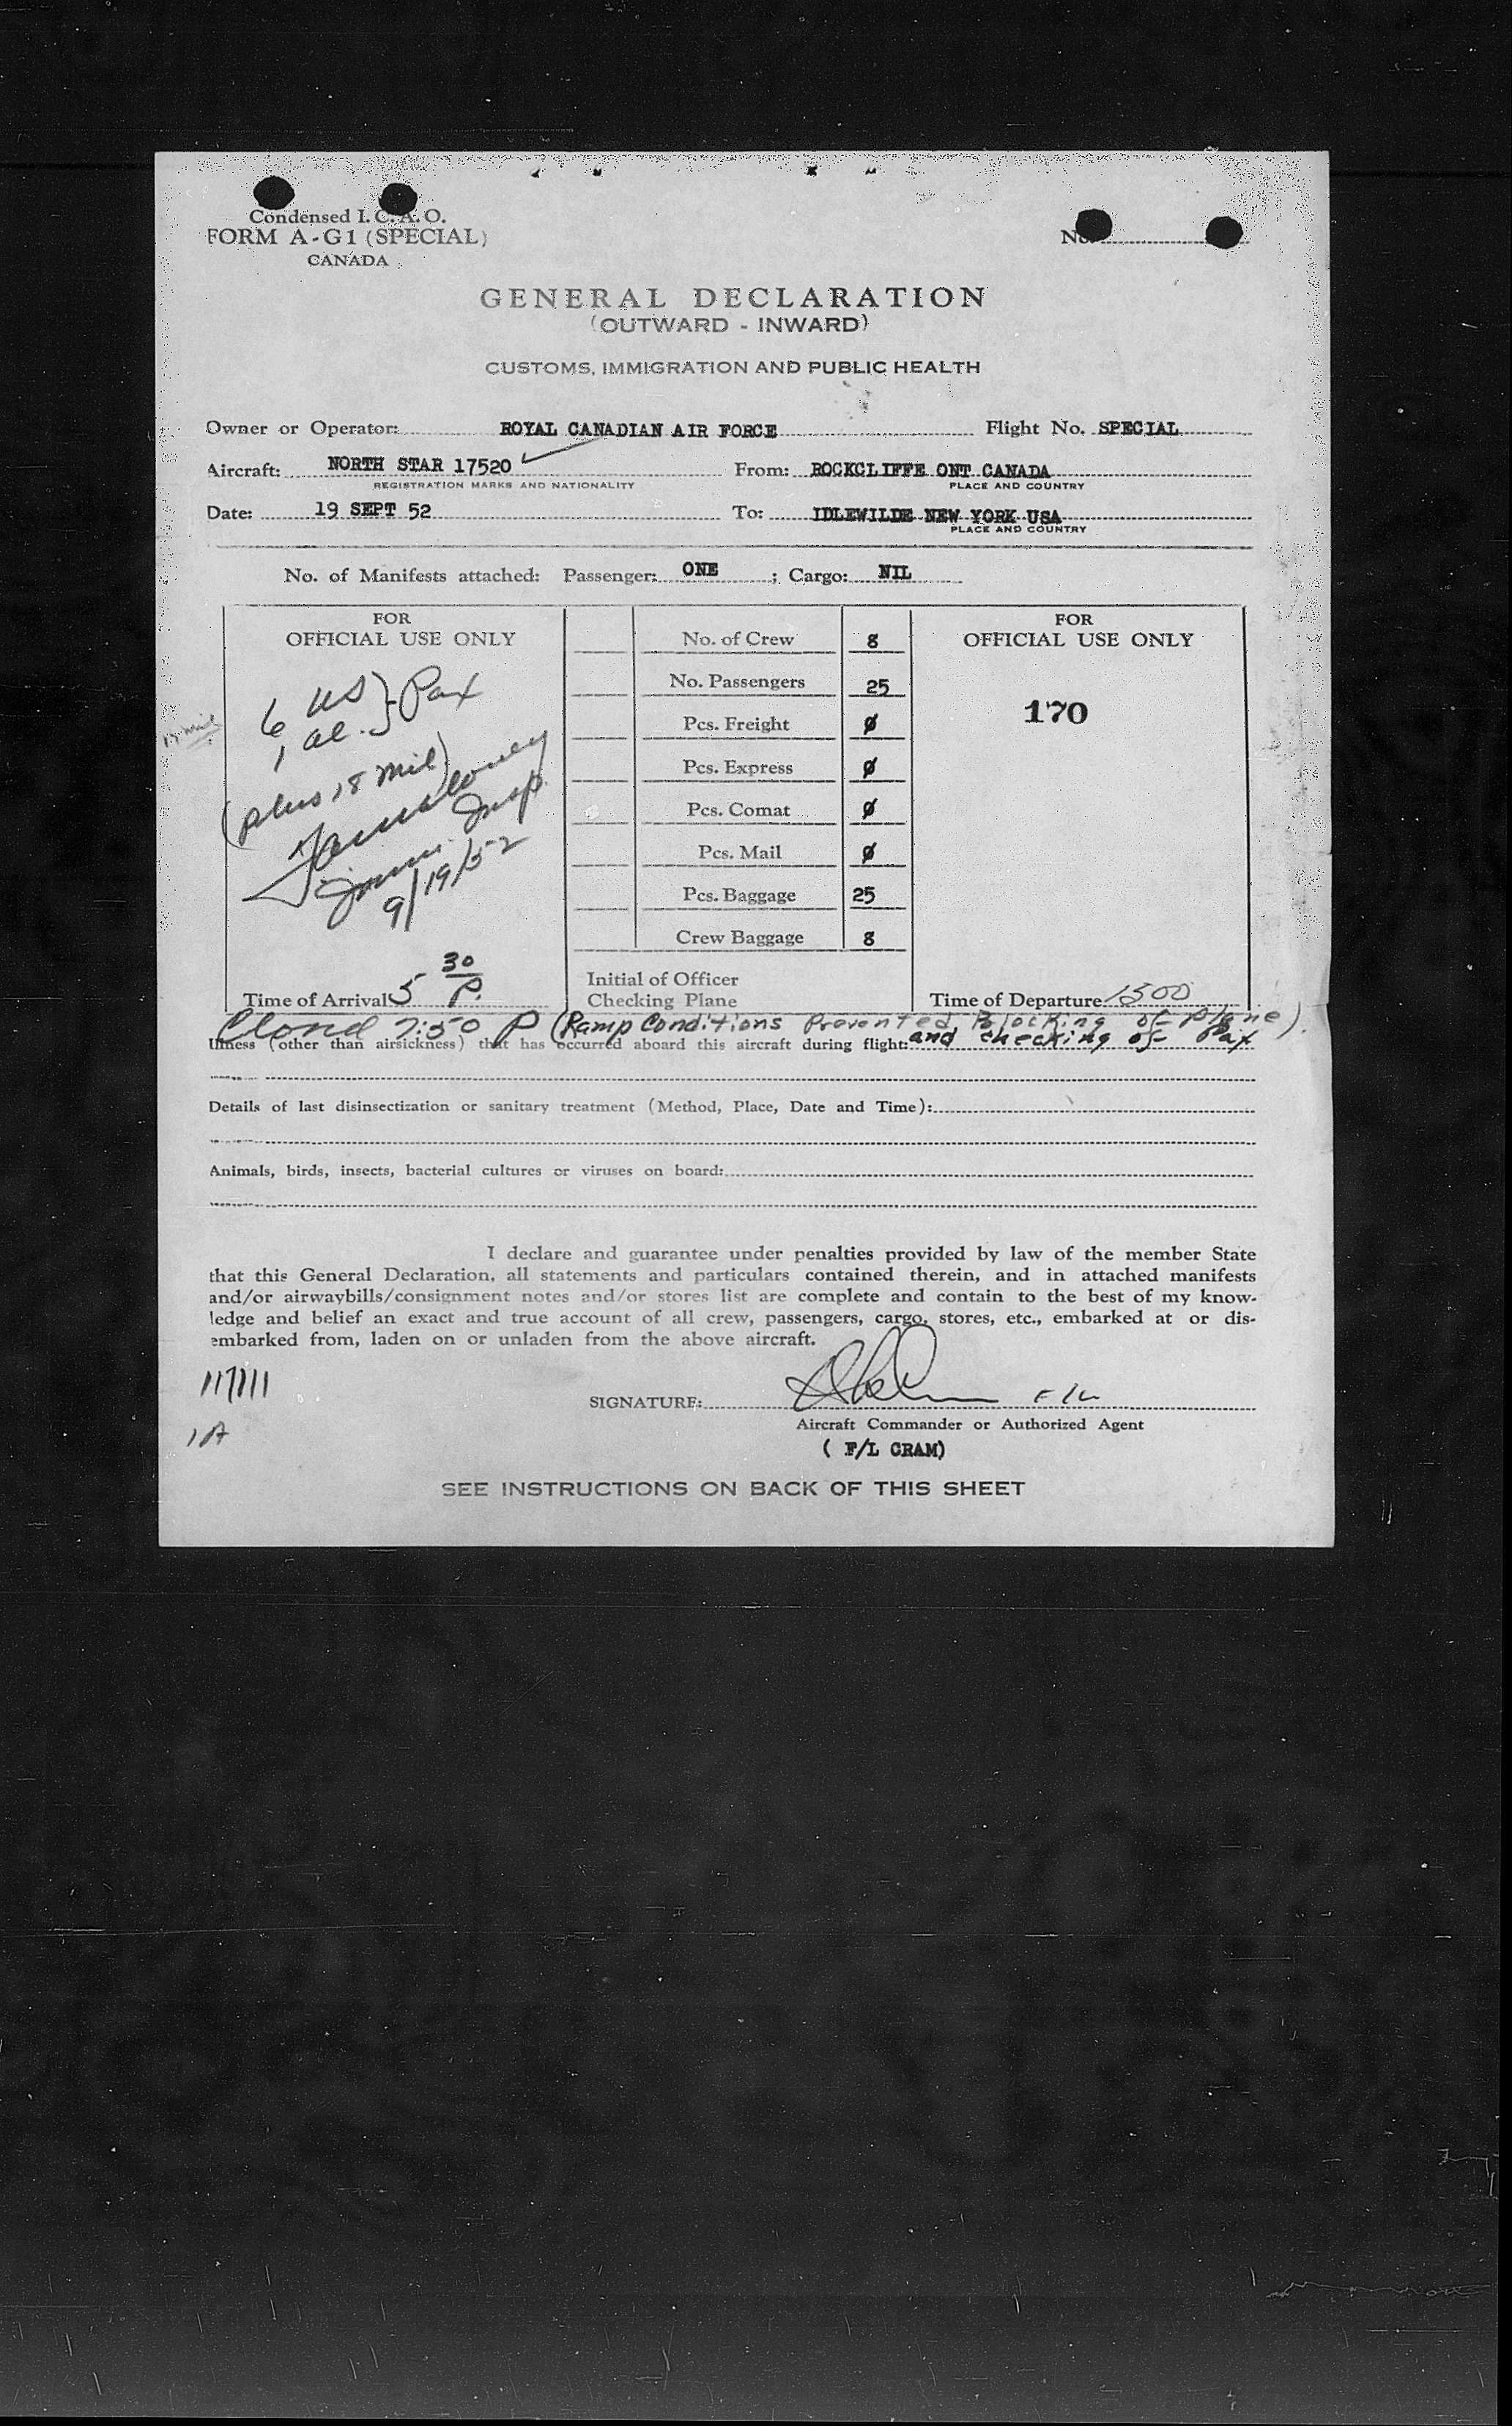 Condensed I. C. A. O.
FORM A-G1 (SPECIAL)
CANADA
No.
GENERAL DECLARATION
(OUTWARD - INWARD)
CUSTOMS, IMMIGRATION AND PUBLIC HEALTH
Owner or Operator: ROYAL CANADIAN AIR FORCE Flight No. SPECIAL
Aircraft: NORTH STAR 17520 From: ROCKCLIFFE ONT CANADA
REGISTRATION MARKS AND NATIONALITY PLACE AND COUNTRY
Date: 19 SEPT 52 To: IDLEWILDE NEW YORK USA
PLACE AND COUNTRY
No. of Manifests attached: Passenger: ONE ; Cargo: NIL
FOR
OFFICIAL USE ONLY
6 US } Pax
1 al.
(plus 18 mil)
Imm. Insp.
9/19/52
Time of Arrival 5 30 P.
No. of Crew 8
No. Passengers 25
Pcs. Freight 0
Pcs. Express 0
Pcs. Comat 0
Pcs. Mail 0
Pcs. Baggage 25
Crew Baggage 8
Initial of Officer
Checking Plane
FOR
OFFICIAL USE ONLY
170
Time of Departure 1500
7:50 P (Ramp Conditions Prevented Blocking of plane).
Illness (other than airsickness) that has occurred aboard this aircraft during flight: and checking of Pax
Details of last disinsectization or sanitary treatment (Method, Place, Date and Time):
Animals, birds, insects, bacterial cultures or viruses on board:
I declare and guarantee under penalties provided by law of the member State
that this General Declaration, all statements and particulars contained therein, and in attached manifests
and/or airwaybills/consignment notes and/or stores list are complete and contain to the best of my know-
ledge and belief an exact and true account of all crew, passengers, cargo, stores, etc., embarked at or dis-
embarked from, laden on or unladen from the above aircraft.
1 A
SIGNATURE: F/L
Aircraft Commander or Authorized Agent
( F/L CRAM)
SEE INSTRUCTIONS ON BACK OF THIS SHEET